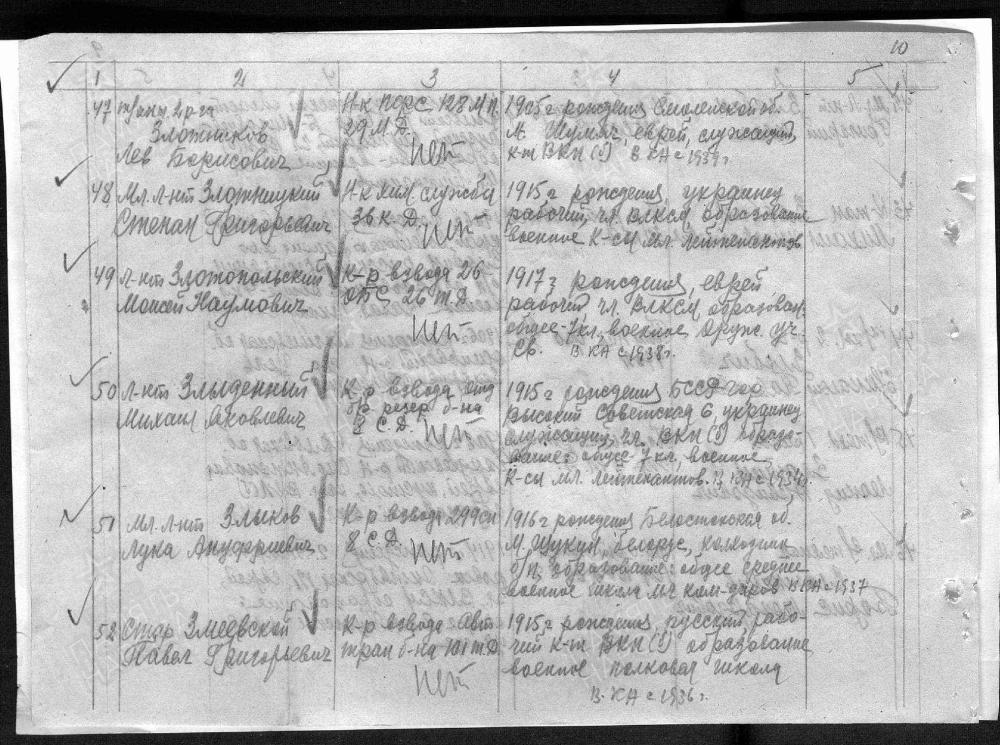 10
1 2 3 4 5
47 т/анц 2 р-га
Злотников
Лев Борисович
Н-к ПОРС 128 М.П.
29 М.Д.
Нет
1905 г рождения Смоленской об.
М. еврей, служащий,
к-т ВКП(б) В КА с 1939 г.
48 Мл. л-нт Злотницкий
Степан Григорьевич
Н-к хим службы
36 К.Д.
Нет
1915 г рождения, украинец
рабочий, чл. ВЛКСМ образование
военное К-сы мл. лейтенантов
49 Л-нт Злотопольский
Моисей Наумович
К-р взвода 26
ОПС 26 т.Д.
Нет
1917 г рождения, еврей
рабочий чл. ВЛКСМ образован.
общее 7 кл., военное Оруж. уч.
Св. В КА с 1938 г.
50 Л-нт Злыденный
Михаил Яковлевич
К-р взвода отд
бр резер б-на
2 С.Д. Нет
1915 г рождения БССР гор
Высокий Советская 6, украинец
служащий, чл. ВКП(б) образо-
вание: общее 7 кл, военное
К-сы мл. лейтенантов. В КА с 1937 г.
51 Мл. л-нт Злыков
Лука Ануфриевич
К-р взвода 299 сп
8 С.Д.
Нет
1916 г рождения Белостокская об.
М. Щукун, белорус, колхозник
б/п, образование: общее среднее
военное школа мл ком-даров В КА с 1937
52 Стар Змеевской
Павел Григорьевич
К-р взвода Авт
тран б-на 101 т.Д.
Нет
1915 г рождения, русский рабо-
чий к-т ВКП(б) образование
военное полковая школа
В КА с 1936 г.